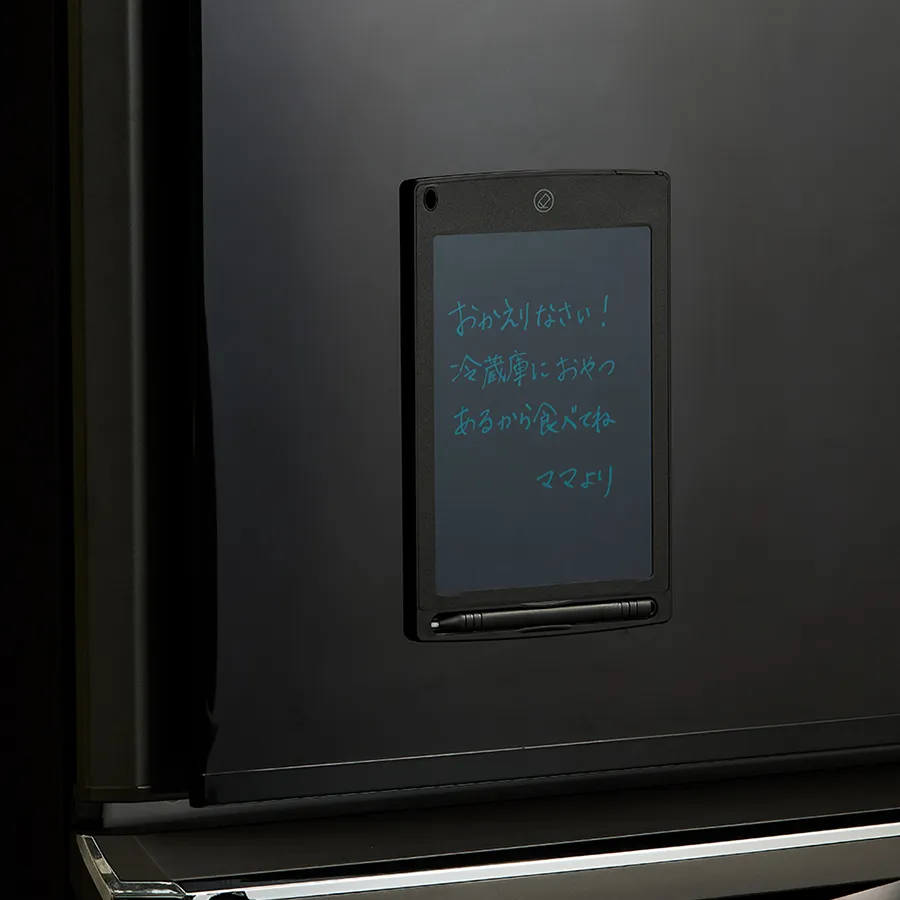 おかえりなさい!
冷蔵庫におやつ
あるから食べてね
ママより